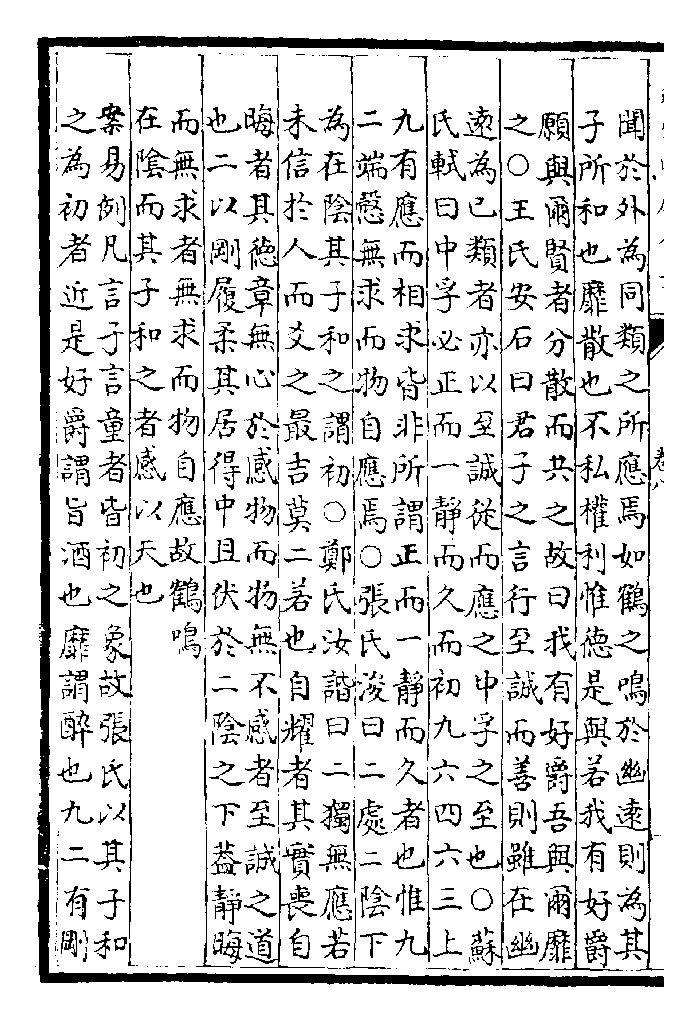 聞於外為同類之所應焉如鶴之鳴於幽遠則為其
子所和也靡散也不私權利惟德是與若我有好爵
願與爾賢者分散而共之故曰我有好爵吾與爾靡
之○王氏安石曰君子之言行至誠而善則雖在幽
遠為已類者亦以至誠從而應之中孚之至也○蘇
氏軾曰中孚必正而一靜而久而初九六四六三上
九有應而相求皆非所謂正而一靜而久者也惟九
二端慤無求而物自應焉○張氏浚曰二處二陰下
為在陰其子和之謂初○鄭氏汝諧曰二獨無應若
未信於人而爻之最吉莫二若也自耀者其實喪自
晦者其德章無心於感物而物無不感者至誠之道
也二以剛履柔其居得中且伏於二陰之下蓋靜晦
而無求者無求而物自應故鶴鳴
在陰而其子和之者感以天也
案易例凡言子言童者皆初之象故張氏以其子和
之為初者近是好爵謂旨酒也靡謂醉也九二有剛